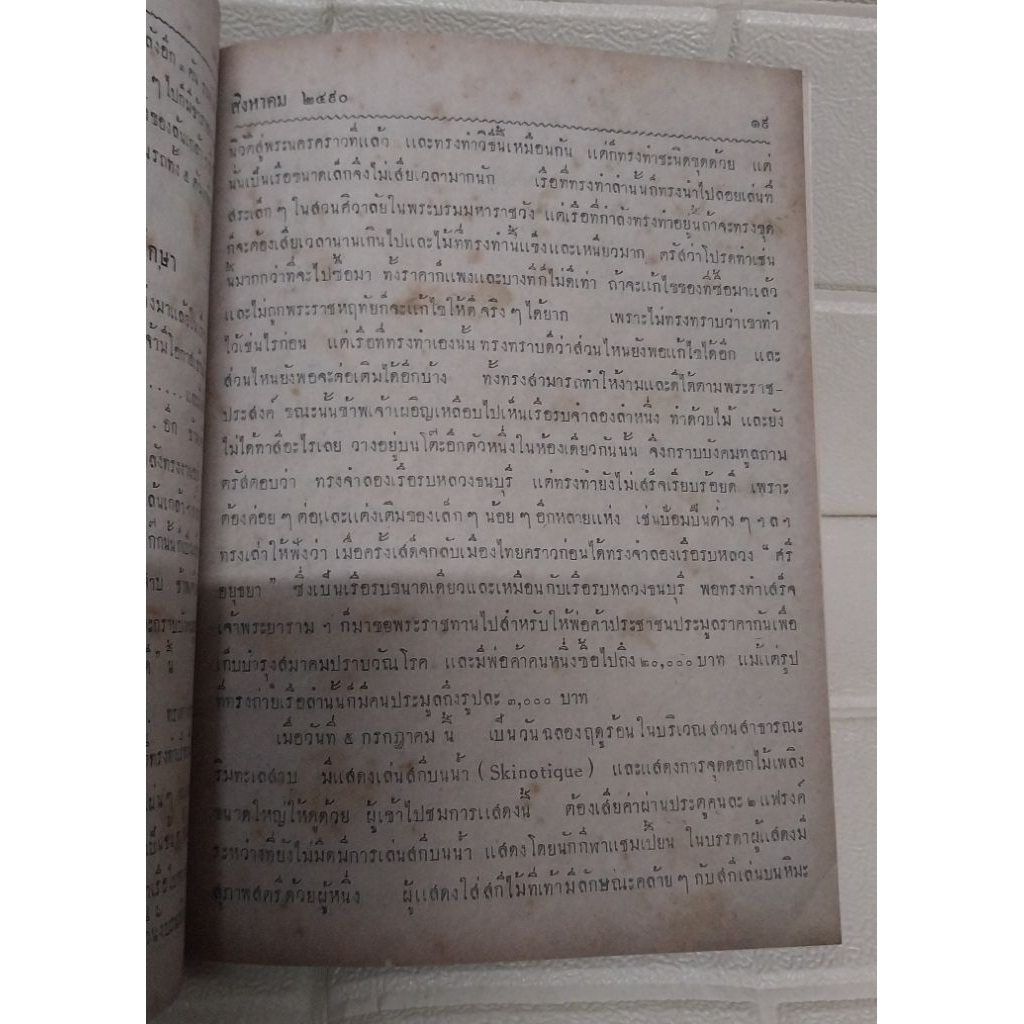 สิงหาคม ๒๔๙๐
๑๙
นิวัติสู่พระนครคราวที่แล้ว และทรงทำวิธีนี้เหมือนกัน แต่ก็ทรงทำชะนิดขุดด้วย แต่
นั่นเป็นเรือขนาดเล็กจึงไม่เสียเวลามากนัก เรือที่ทรงทำลำนั้นก็ทรงนำไปลอยเล่นที่
สระเล็ก ๆ ในสวนศิวาลัยในพระบรมมหาราชวัง แต่เรือที่กำลังทรงทำอยู่นี้ถ้าจะทรงขุด
ก็จะต้องเสียเวลานานเกินไปและไม้ที่ทรงทำนี้แข็งและเหนียวมาก ตรัสว่าโปรดทำเช่น
นี้มากกว่าที่จะไปซื้อมา ทั้งราคาก็แพงและบางทีก็ไม่ดีเท่า ถ้าจะแก้ไขของที่ซื้อมาแล้ว
และไม่ถูกพระราชหฤทัยก็จะแก้ไขให้ดีจริง ๆ ได้ยาก เพราะไม่ทรงทราบว่าเขาทำ
ไว้เช่นไรก่อน แต่เรือที่ทรงทำเองนั้น ทรงทราบดีว่าส่วนไหนยังพอแก้ไขได้อีก และ
ส่วนไหนยังพอจะต่อเติมได้อีกบ้าง ทั้งทรงสามารถทำให้งามและดีได้ตามพระราช-
ประสงค์ ขณะนั้นข้าพเจ้าเผอิญเหลือบไปเห็นเรือรบจำลองลำหนึ่ง ทำด้วยไม้ และยัง
ไม่ได้ทาสีอะไรเลย วางอยู่บนโต๊ะอีกตัวหนึ่งในห้องเดียวกันนั้น จึงกราบบังคมทูลถาม
ตรัสตอบว่า ทรงจำลองเรือรบหลวงธนบุรี แต่ทรงทำยังไม่เสร็จเรียบร้อยดี เพราะ
ต้องค่อย ๆ ต่อและแต่งเติมของเล็ก ๆ น้อย ๆ อีกหลายแห่ง เช่นป้อมปืนต่าง ๆ ฯลฯ
ทรงเล่าให้ฟังว่า เมื่อครั้งเสด็จกลับเมืองไทยคราวก่อนได้ทรงจำลองเรือรบหลวง “ศรี
อยุธยา” ซึ่งเป็นเรือรบขนาดเดียวและเหมือนกับเรือรบหลวงธนบุรี พอทรงทำเสร็จ
เจ้าพระยาราม ฯ ก็มาขอพระราชทานไปสำหรับให้พ่อค้าประชาชนประมูลราคากันเพื่อ
เก็บบำรุงสมาคมปราบวัณโรค และมีพ่อค้าคนหนึ่งซื้อไปถึง ๒๐,๐๐๐ บาท แม้แต่รูป
ที่ทรงถ่ายเรือลำนั้นก็มีคนประมูลถึงรูปละ ๓,๐๐๐ บาท
เมื่อวันที่ ๕ กรกฎาคม นี้ เป็นวันฉลองฤดูร้อนในบริเวณสวนสาธารณะ
ริมทะเลสาบ มีแสดงเล่นสกีบนน้ำ (Skinotique) และแสดงการจุดดอกไม้เพลิง
ขนาดใหญ่ให้ดูด้วย ผู้เข้าไปชมการแสดงนี้ ต้องเสียค่าผ่านประตูคนละ ๒ แฟรงค์
ระหว่างที่ยังไม่มืดมีการเล่นสกีบนน้ำ แสดงโดยนักกีฬาแชมเปี้ยน ในบรรดาผู้แสดงมี
สุภาพสตรีด้วยผู้หนึ่ง ผู้แสดงใส่สกีไม้ที่เท้ามีลักษณะคล้าย ๆ กับสกีเล่นบนหิมะ